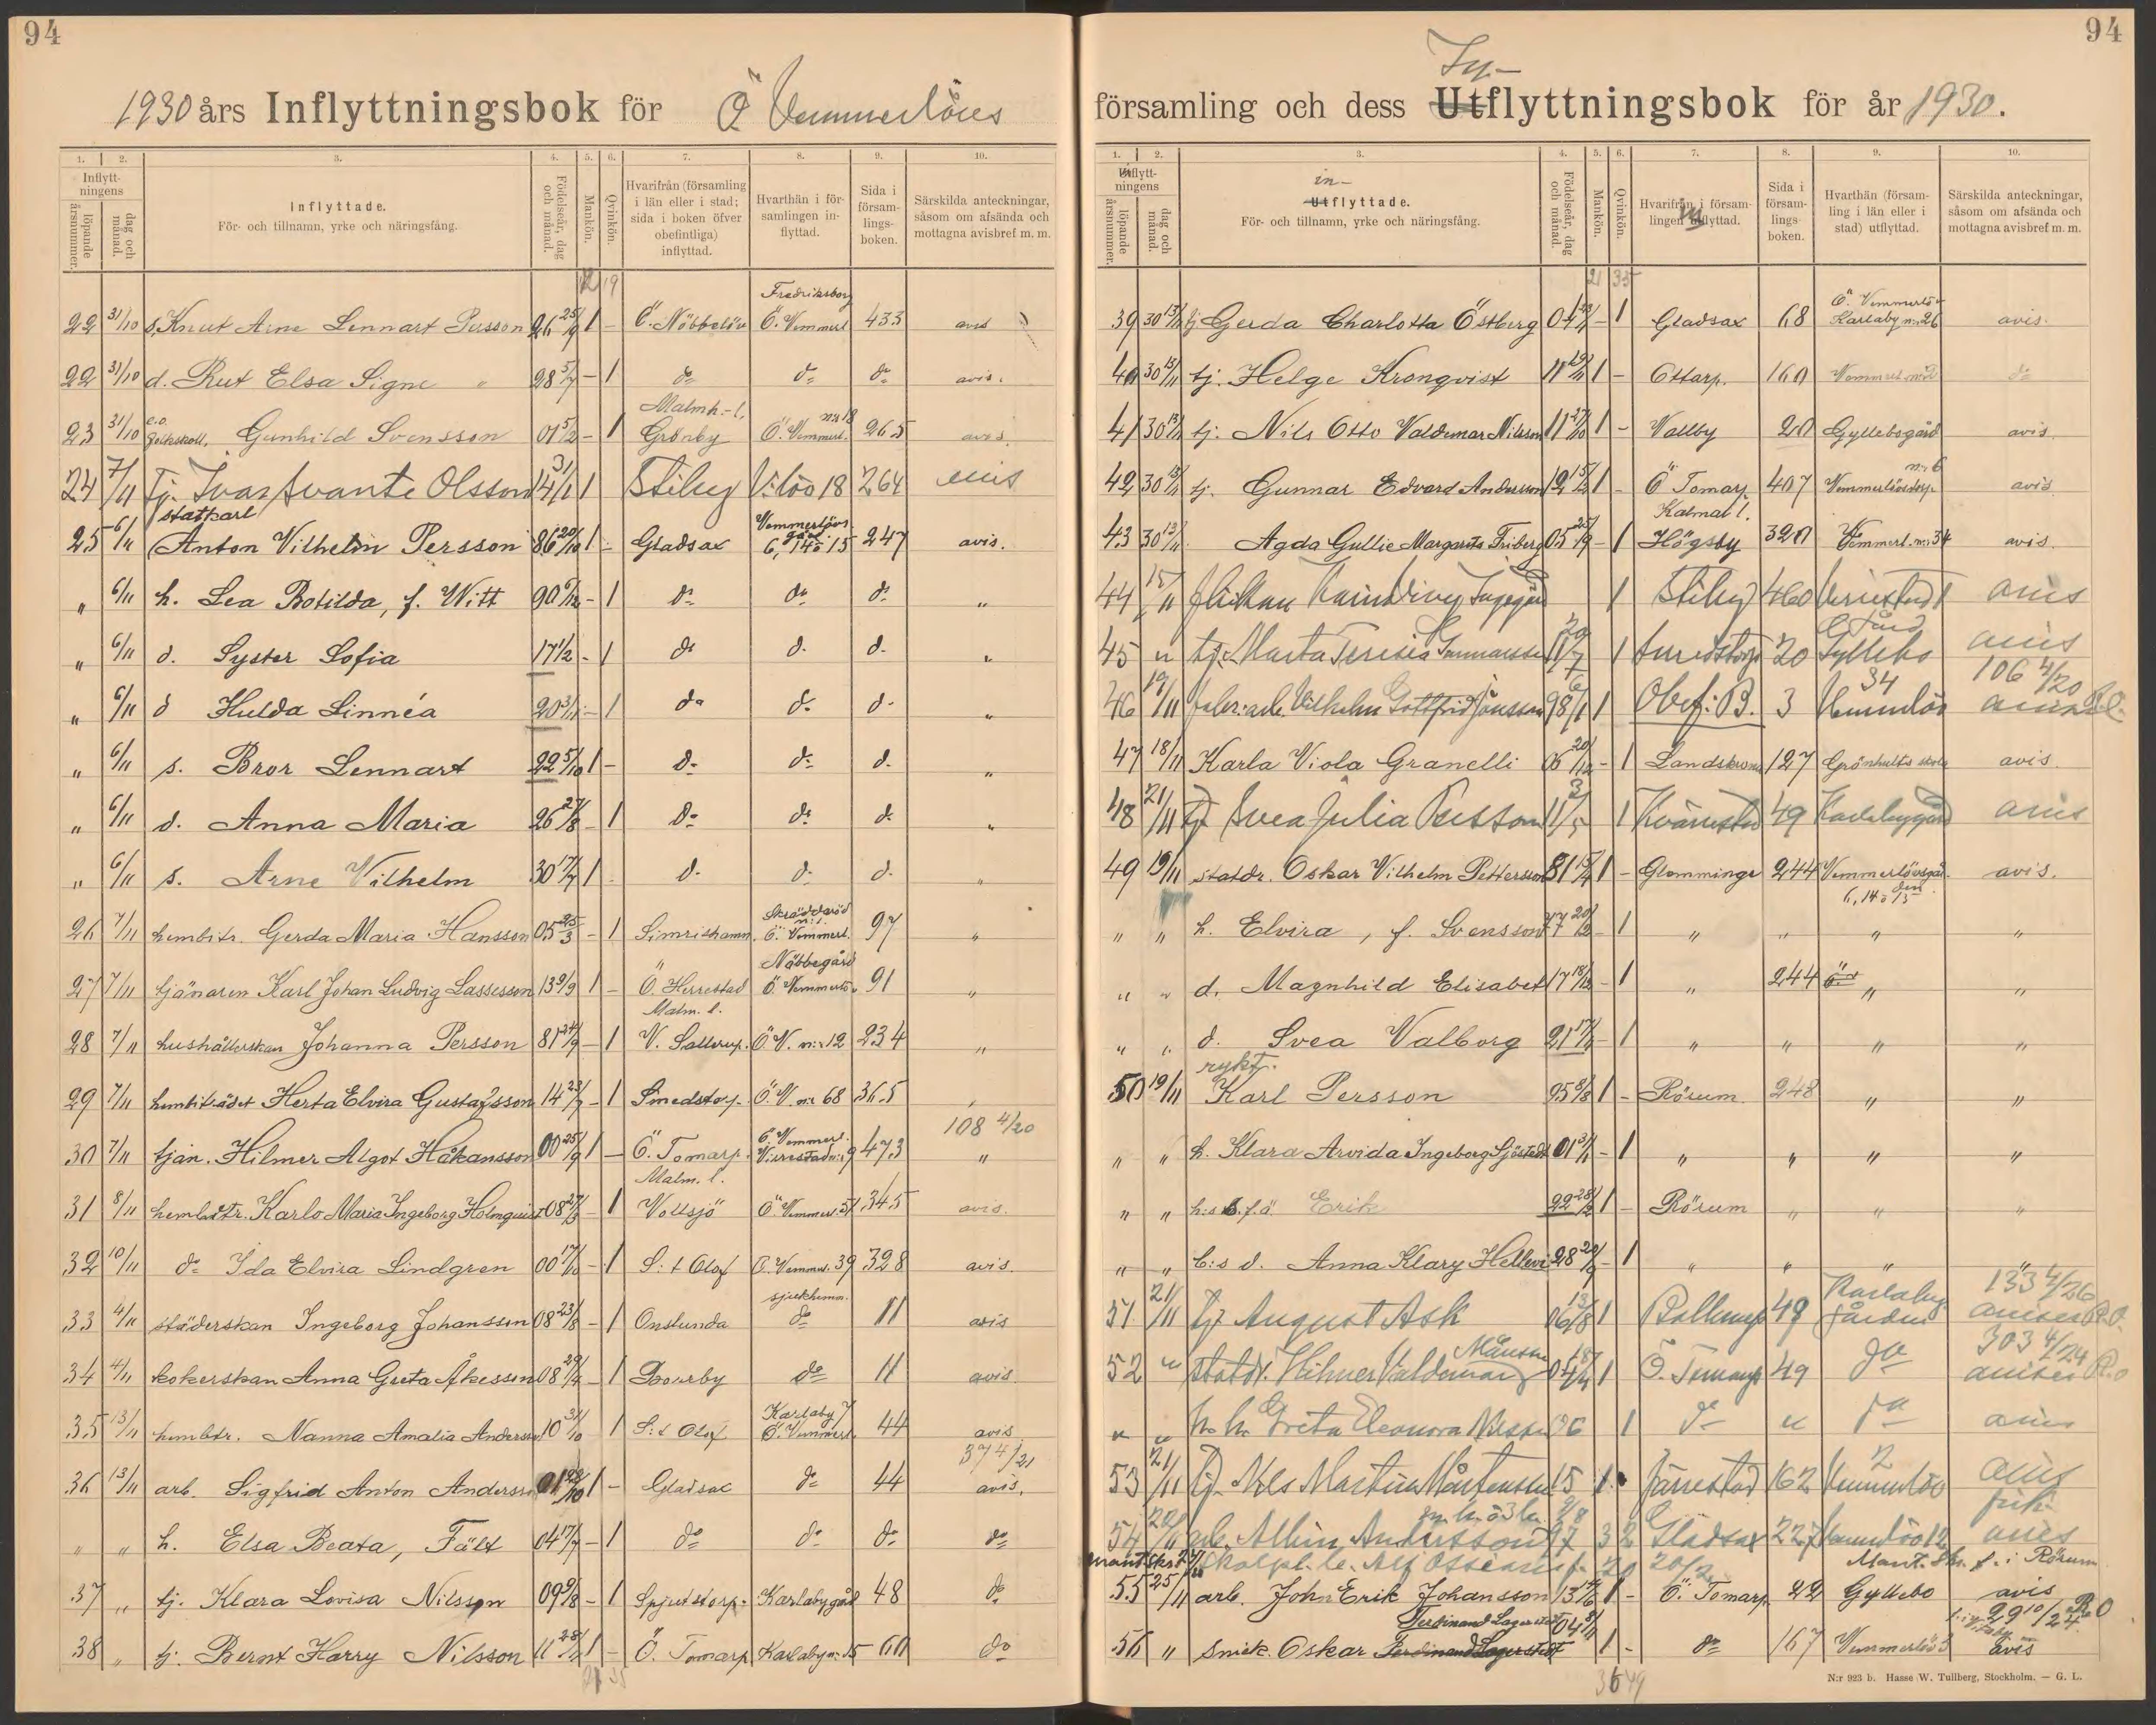 94
1930 års Inflyttningsbok för Ö Vemmerlövs
1. 2. 3. 4. 5. 6. 7. 8. 9. 10.
Inflytt-
ningens
löpande
årsnummer.
dag och
månad.
Inflyttade.
För- och tillnamn, yrke och näringsfång.
Födelseår, dag
och månad.
Mankön.
Qvinkön.
Hvarifrån (församling
i län eller i stad;
sida i boken öfver
obefintliga)
inflyttad.
Hvarthän i för-
samlingen in-
flyttad.
Sida i
försam-
lings-
boken.
Särskilda anteckningar,
såsom om afsända och
mottagna avisbref m. m.
Fredriksborg
22 31/10 s. Knut Arne Lennart Persson 26 25/9 1 - Ö. Nöbbelöv Ö. Vemmerl 433 avis
22 31/10 d. Rut Elsa Signe " 28 5/7 - 1 do do do avis.
Malmh.-l.
23 31/10 e.o. folkskoll. Gunhild Svensson 01 5/2 - 1 Grönby Ö. Vemmerl. nr 18 265 avis.
24 7/11 Tj. Ivar Svante Olsson 14 31/1 1 Stiby V:löv 18 264 avis
statkarl
25 6/11 Anton Vilhelm Persson 86 20/10 1 - Gladsax Vemmerlövs gård 6, 14 o 15 247 avis.
" 6/11 h. Lea Botilda, f. Witt 90 6/12 - 1 do do do "
" 6/11 d. Syster Sofia 17 1/2 - 1 do d. d. "
" 6/11 d Hulda Linnéa 20 3/11 - 1 do d. d. "
" 6/11 s. Bror Lennart 22 5/10 1 - d. do d. "
" 6/11 d. Anna Maria 26 27/8 - 1 do do d. "
" 6/11 s. Arne Vilhelm 30 17/7 1 . d. d. d. "
26 7/11 hembitr. Gerda Maria Hansson 05 25/3 - 1 Simrishamn Skräddaröd n:1. Ö. Vemmerl. 97 "
27 7/11 tjänaren Karl Johan Ludvig Lassesson 13 9/9 1 - Ö. Herrestad Nöbbegård Ö. Vemmerlö. 91 "
Malm. l.
28 7/11 hushållerskan Johanna Persson 81 24/9 - 1 V. Sallerup. Ö. V. n:r 12 234 "
29 7/11 hembiträdet Herta Elvira Gustafsson 14 23/7 - 1 Smedstorp. Ö. V. nr 68 365 "
108 4/20
30 7/11 tjän. Hilmer Algot Håkansson 00 25/9 1 - Ö. Tomarp. Ö. Vemmerl. Virrestad n:r 9 473 "
Malm. l.
31 8/11 hembitr. Karla Maria Ingeborg Holmquist 08 27/3 - 1 Vollsjö Ö. Vemmerl. 51 345 avis.
32 10/11 do Ida Elvira Lindgren 00 17/10 - 1 S:t Olof Ö. Vemmer. 39 328 avis.
sjukhemm.
33 4/11 städerskan Ingeborg Johansson 08 23/8 - 1 Onslunda do 11 avis
34 4/11 kokerskan Anna Greta Åkesson 08 29/4 - 1 Borrby do 11 avis
35 13/11 hembitr. Nanna Amalia Andersson 10 31/10 1 S:t Olof Karlaby 7 Ö. Vemmerl. 44 avis
374/21
36 13/11 arb. Sigfrid Anton Andersson 01 22/10 1 - Gladsax do 44 avis.
" " h. Elsa Beata, Fält 04 17/7 - 1 do do do do
37 " tj. Klara Lovisa Nilsson 09 9/8 - 1 Spjutstorp. Karlabygård 48 do
38 " tj. Bernt Harry Nilsson 11 28/2 1 - Ö. Tomarp Karlaby nr 15 60 do
21 35
94
In-
församling och dess Utflyttningsbok för år 1930.
1. 2. 3. 4. 5. 6. 7. 8. 9. 10.
Utflytt-
ningens
löpande
årsnummer.
dag och
månad.
in-
Utflyttade.
För- och tillnamn, yrke och näringsfång.
Födelseår, dag
och månad.
Mankön.
Qvinkön.
Hvarifrån i försam-
lingen utflyttad.
Sida i
försam-
lings-
boken.
Hvarthän (försam-
ling i län eller i
stad) utflyttad.
Särskilda anteckningar,
såsom om afsända och
mottagna avisbref m. m.
21 35
39 30 13/11 tj Gerda Charlotta Östberg 04 - 1 Gladsax 68 Ö. Vemmerlöv Karlaby nr 26 avis.
40 30 13/11 tj. Helge Kronqvist 11 1 - Ottarp. 160 do
41 30 13/11 tj. Nils Otto Valdemar Nilsson 11 27/10 1 - Vallby 20 Gyllebogård avis
42 30 13/11 tj. Gunnar Edvard Andersson 12 15/12 1 - Ö Tomarp 407 Vemmerlövstorp n:r 6 avis
Kalmar l.
43 30 13/11 Agda Gullie Margareta Friberg 05 25/9 - 1 Högsby 320 Vemmerl. nr 34 avis.
44 15/11 flickan Karin Ingegärd 1 Stiby 460 Virrestad 1 avis
45 " tj. Marta Teresia Gunnarsson 11 29/7 1 Smedstorp 20 Gyllebo gård avis
106 4/20
46 19/11 fabr:arb. Vilhelm Gottfrid Jönsson 98 6/1 1 Obef: B. 3 34 Vemmlöv
47 18/11 Karla Viola Granelli 06 20/12 - 1 Landskrona 127 Grönhults skola avis.
48 21/11 tj Svea Julia Persson 11 3/5 1 Kvärrestad 49 Karlabygård avis
49 19/11 statdr. Oskar Vilhelm Pettersson 81 1 - Glemminge 244 Vemmerlövsgården 6, 14 o 15 avis.
" " h. Elvira, f. Svensson 77 20/12 - 1 " " " "
" " d. Magnhild Elisabet 17 18/12 - 1 " 244 " "
" " d. Svea Valborg 21 - 1 " " " "
rykt.
50 19/11 Karl Persson 95 8/8 1 - Rörum. 248 " "
" " h. Klara Arvida Ingeborg Sjöstedt 01 - 1 " " " "
" " h:s f.ä Erik 22 28/2 1 - Rörum " " "
" " b:s d. Anna Klary Hellevi 28 - 1 " " " "
133 4/26
51 21/11 tj August Ask 06 13/8 1 Bollerup 49 Karlaby gården
303 4/24
52 " statdr. Hilmer Valdemar Månsson 04 1 Ö. Tomarp 49 do
" " h. h. Greta Eleonora 06 1 do " do avis
53 21/11 tj. Nils Martin Mårtensson 15 1 Järrestad 162 2 Vemmlöv avis
54 20/11 arb. Albin Andersson 97 3 2 Gladsax 227 Vemmlöv 12 avis
Mant. skr. f. i Rörum
55 25/11 arb. John Erik Johansson 13 1 - Ö. Tomarp 22 Gyllebo avis
Ferdinand Lagerstedt 04
29 10/24 RO
56 " smek. Oskar Ferdinand Lagerstedt 1 - do 167 Vemmerlöv 3 avis
36 49
N:r 923 b. Hasse W. Tullberg, Stockholm. — G. L.